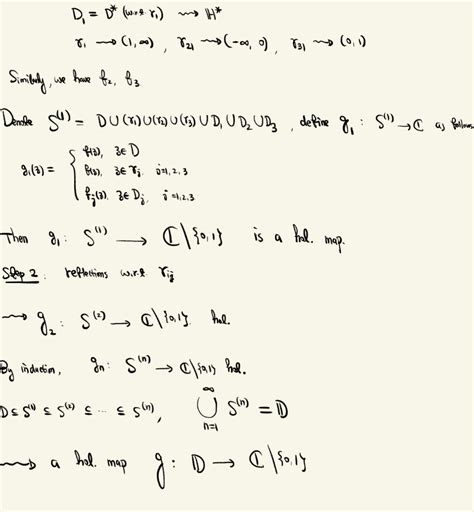 D₁ = D* (w.r.t. γ₁) ⟿ ℍ*
γ₁ ⟿ (1, ∞), γ₂₁ ⟿ (-∞, 0), γ₃₁ ⟿ (0, 1)
Similarly, we have f₂, f₃
Denote S⁽¹⁾ = D∪(γ₁)∪(γ₂)∪(γ₃)∪D₁∪D₂∪D₃, define g₁: S⁽¹⁾ → ℂ as follows
g₁(z) = { f(z), z∈D
f(z), z∈γⱼ, j=1,2,3
fⱼ(z), z∈Dⱼ, j=1,2,3
Then g₁: S⁽¹⁾ ⟶ ℂ\{0,1} is a hol. map.
Step 2: reflections w.r.t γᵢⱼ
⟿ g₂: S⁽²⁾ → ℂ\{0,1} hol.
By induction, gₙ: S⁽ⁿ⁾ → ℂ\{0,1} hol.
D ⊆ S⁽¹⁾ ⊆ S⁽²⁾ ⊆ ⋯ ⊆ S⁽ⁿ⁾, ⋃ₙ₌₁^∞ S⁽ⁿ⁾ = 𝔻
⟿ a hol. map g: 𝔻 → ℂ\{0,1}